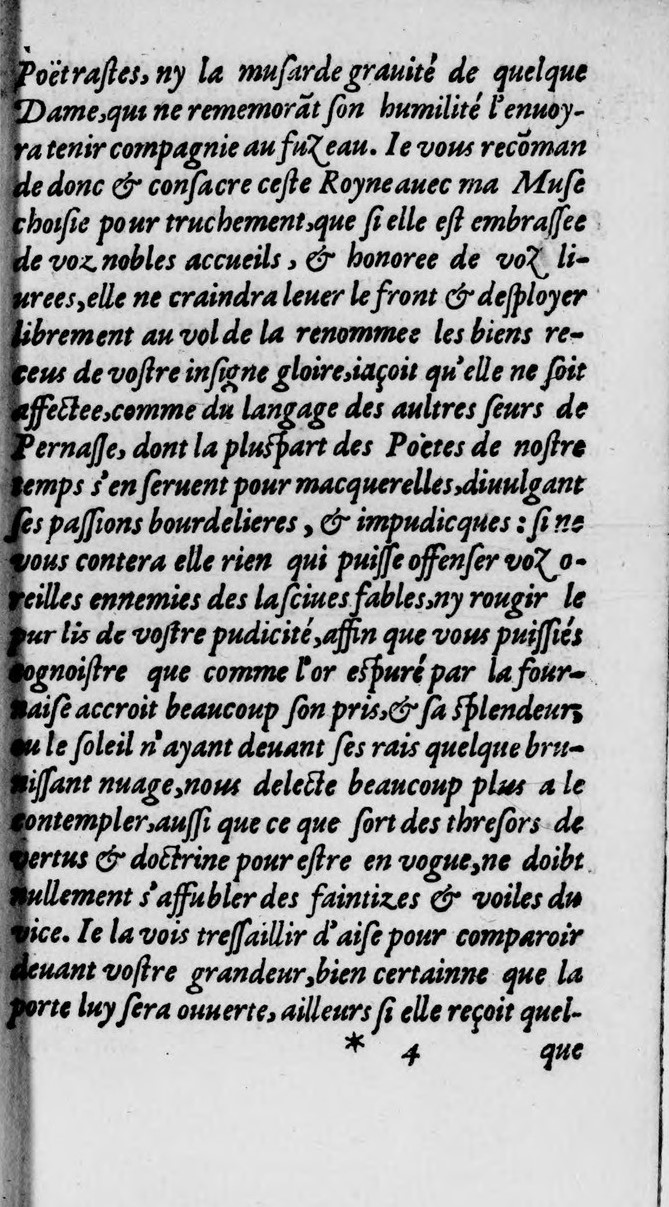 Poëtraſtes, ny la muſarde grauité de quelque
Dame, qui ne rememorāt ſon humilité l'enuoy-
ra tenir compagnie au fuzeau. Ie vous recōman
de donc & conſacre ceſte Royne auec ma Muſe
choiſie pour truchement, que ſi elle eſt embraſſee
de voz nobles accueils, & honoree de voz li-
urees, elle ne craindra leuer le front & deſployer
librement au vol de la renommee les biens re-
ceus de voſtre inſigne gloire, iaçoit qu'elle ne ſoit
affectee, comme du langage des aultres ſeurs de
Pernaſſe, dont la pluſpart des Poëtes de noſtre
temps s'en ſeruent pour macquerelles, diuulgant
ſes paſſions bourdelieres, & impudicques : ſi ne
vous contera elle rien qui puiſſe offenſer voz o-
reilles ennemies des laſciues fables, ny rougir le
pur lis de voſtre pudicité, affin que vous puiſſiés
cognoiſtre que comme l'or eſpuré par la four-
naiſe accroit beaucoup ſon pris, & ſa ſplendeur,
ou le ſoleil n'ayant deuant ſes rais quelque bru-
niſſant nuage, nous delecte beaucoup plus a le
contempler, auſſi que ce que ſort des threſors de
vertus & doctrine pour eſtre en vogue, ne doibt
nullement s'affubler des faintizes & voiles du
vice. Ie la vois treſſaillir d'aiſe pour comparoir
deuant voſtre grandeur, bien certainne que la
porte luy ſera ouuerte, ailleurs ſi elle reçoit quel-
* 4 que